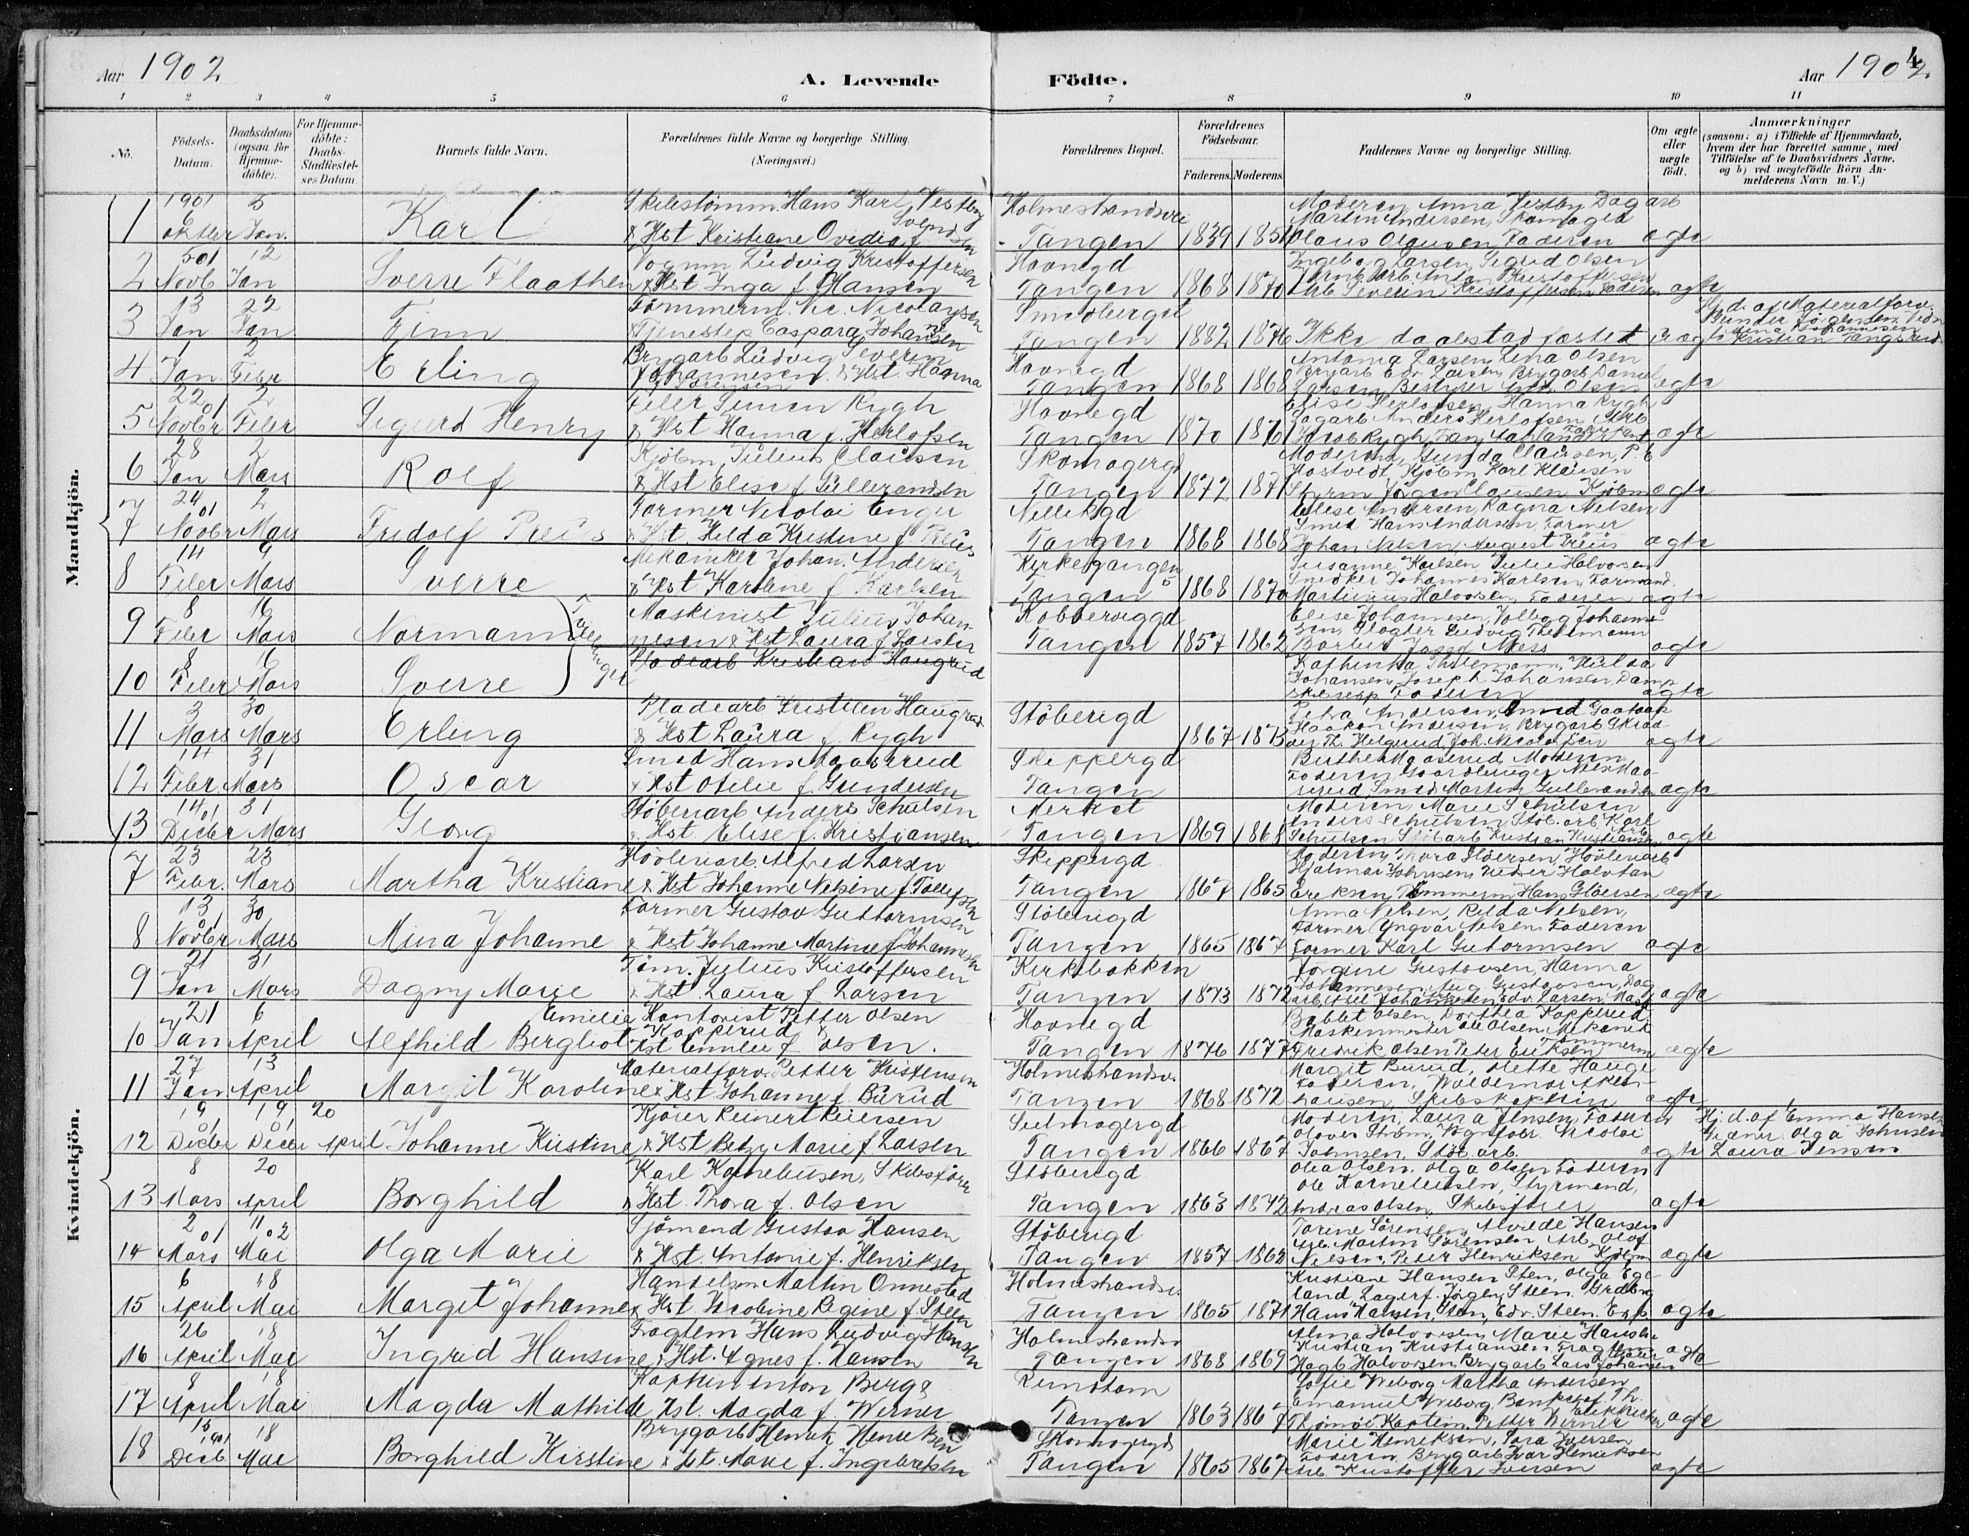 Aar 1902
A. Levende Födte.
Aar 1902.
4
1 2 3 4 5 6 7 8 9 10 11
No.
Födsels-Datum.
Daabsdatum (ogsaa for Hjemme-döbte).
For Hjemme-döbte: Daabs-Stadfæstel-ses Datum.
Barnets fulde Navn.
Forældrenes fulde Navne og borgerlige Stilling. (Næringsvei.)
Forældrenes Bopæl.
Forældrenes Födselsaar.
Faderens. Moderens.
Faddernes Navne og borgerlige Stilling.
Om ægte eller uægte födt.
Anmærkninger (saasom: a) i Tilfælde af Hjemmedaab, hvem der har forrettet samme, med Tilföielse af to Daabsvidners Navne. og b) ved uægtefödte Börn Anmelderens Navn m. V.)
Mandkjön.
1 1901 6 oktber 5 Jan. Karl Hans Karl Vestby & Hst Kristiane Ovidia f. Svendsen Holmestrandsvei Tangen 1839 Moderen, Anna Vestby Dagarb Martin Andersen, Olaus Olausen, Faderen ægte
2 5 01 Novb 12 Jan Sverre Flaathen Vognm. Ludvig Kristoffersen & Hst Inga f. Hansen Havnegd Tangen 1868 1870 Ingeborg Larsen, Sigrid Olsen Anton Kristoffersen Arb Severin Kristoffersen, Faderen ægte
3 13 Jan 22 Jan Finn Tömmerm. Nic. Nicolaysen & Tjenestep Caspara Johansen Smedbergd Tangen 1882 1876 Ikke daabstadfæstet uægte Hjd. af Materialforv. Kristian Tangsrud
4 1 Jan 2 Febr Erling Brygarb Ludvig Severin Johannesen & Hst Hanna Sörensen Havnegd Tangen 1868 1868 Antonia Larsen, Lina Olsen Brygarb Edv Larsen, Brygarb Daniel Larsen, Bestyrer Olsen ægte
5 22 01 Novbr 2 Feber Sigurd Henry Filer Simen Rygh & Hst Hanna f. Herlofsen Havnegd Tangen 1870 1876 Elise Herlofsen, Hanna Rygh Sagarb Anders Herlofsen, Arb Jacob Rygh ægte
6 28 Jan 2 Mars Rolf Kjöbm Julius Clausen & Hst Elise f. Gulbrandsen Skomagergd Tangen 1872 1871 Moderen, Gunda Clausen, Kjöbm Karl Klausen Styrm Jörgen Clausen, Kjöbm ægte
7 24 01 Novbr 2 Mars Fridolf Preus Former Nicolai Enger & Hst Hilda Kristine f. Preus Nellikgd Tangen 1868 1868 Elise Andersen, Ragna Nelsen Smed Hans Andersen, Former Johan Nelsen, August Preus ægte
8 14 Feber 9 Mars Sverre Mekaniker Johan Andersen & Hst Karoline f. Karlsen Kirkegangen 5 Tangen 1868 1870 Susanne Karlsen, Julie Halvorsen Snedker Johannes Karlsen, Formand Martinius Halvorsen, Faderen ægte
9 8 Feber 16 Mars Normann Tvillinger Maskinist Julius Johannesen & Hst Laura f. Larsen Kobberviggd Tangen 1857 1862 Elise Johannesen, Valborg Johannesen, Slagter Ludvig Thelemann Barber Ness ægte
10 8 Feber Mars Sverre Pladearb Kristian Haugrud Kathinka Thelemann, Hulda Johansen, Joseph Johansen, Faderen ægte
11 3 Mars 30 Mars Erling Pladearb Kristian Haugrud & Hst Laura f. Rygh Stöberigd 1867 1873 Petra Andersen, Smed Haakon Andersen, Brygarb Th. Helgerud, Joh. Nicolaisen ægte
12 14 Feber 31 Mars Oscar Smed Hans Maaserud & Hst Otilie f. Gundersen Skippergd Tangen Moderen Faderen, Gaardbruger Nils Maaserud, Smed Martin Gulbrandsen ægte
13 14 01 Decber 31 Mars Georg Stöberiarb Anders Schulsen & Hst Elise f. Kristiansen Tangen 1869 1868 Moderen, Marie Schulsen Anders Schulsen, Stöb.arb Karl Schulsen, Stöbarb Kristian Kristiansen ægte
Kvindekjön.
7 23 Febr. 23 Mars Martha Kristiane Hövleriarb. Alfred Larsen & Hst Johanne Nelsine f. Tollefsen Skippergd. Tangen 1867 1865 Moderen, Thora Gloersen, Hövleriarb Hjalmar Johnsen, Halvdan Eriksen, Tömmerm Hans Gloersen ægte
8 13 01 Novbr 30 Mars Mina Johanne Former Gustav Guttormsen & Hst Johanne Martine f. Johannesen Stöberigd Tangen 1865 1867 Anna Nelsen, Hilda Nelsen, Former Yngvar Nelsen, Faderen Former Karl Gutormsen ægte
9 21 Jan 31 Mars Dagny Marie Töm. Julius Kristoffersen & Hst Laura f. Larsen Kirkebakken Tangen 1873 1872 Jorgine Gustavsen, Hanna Johannesen, Aug Gustavsen, Dagarb Johannesen, Edv. Larsen ægte
10 21 Jan 6 April Alfhild Bergliot Emelie Kontorist Petter Olsen Kopperud & Hst Emilie f. Olsen. Havnegd Tangen 1876 1877 Babbet Olsen, Dorthea Kopperud Maskinmester Ole Olsen, Mekanik Fredrik Olsen, Peter Eriksen Tömmerm ægte
11 27 Jan 13 April Margit Karoline Materialforv. Petter Kristensen & Hst Johanne f. Burud Holmestrandsv. Tangen 1868 1872 Margit Burud, Mette Hauge Faderen, Waldemar Skibskaptein ægte
12 19 01 Decbr 19 01 Decbr 20 April Johanne Kristine Kjörer Reinert Reiersen & Hst Betzy Marie f. Larsen Selmagergd Tangen 1866 1867 Moderen, Laura Jensen, Faderen Olaves Ström, Vognfabr. Nicolai Johnsen, Stöb.arb. ægte Hj.d. af Emma Hansen Vidner: Olga Johnsen Laura Jensen
13 8 Mars 20 April Borghild Karl Kornelieusen, Skibsförer & Hst. Thora f. Olsen Stöberigd Tangen 1863 1872 Olea Olsen, Olga Olsen, Faderen Ole Kornelieusen, Styrmand, Andreas Olsen, Skibsförer ægte
14 2 01 Mars 11 02 Mai Olga Marie Sjömand Gustav Hansen & Hst. Antonie f. Henriksen Stöberigd Tangen 1857 1862 Torine Sörensen, Alvilde Hansen Arb. Martin Sörensen, Arb. Olof Nielsen, Peter Henriksen Kjöbm ægte
15 6 April 18 Mai Margit Johanne Handelsm Martin Onnestad & Hst. Jacobine Regine f. Steen Holmestrandsv. Tangen 1865 1871 Kristiane Hansen Steen, Olga Egeland, Lagerf. Jörgen Steen, Grdbrg Hans Hansen Steen, Edv. Steen, ægte
16 26 April 18 Mai Ingrid Hansine Fragtem Hans Ludvig Hansen & Hst. Agnes f. Hansen Holmestrandsv Tangen 1868 1869 Alma Halvorsen, Marie Hansen Kristian Kristiansen Fragtem Hagb Halvorsen, Brygarb Lars Johansen ægte
17 8 April 18 Mai Magda Mathilde Kaptein Anton Berg & Hst. Magda f. Werner Tangen 1863 1867 Sofie Wiborg, Martha Andersen Emanuel Wiborg, Kaptein Petter Werner ægte
18 15 1901 Decb 18 Mai Borghild Kirstine Brygarb Henrik Henriksen & Hst. Marie f. Ingebretsen Skomagergd Tangen 1865 1867 Marie Henriksen, Sara Iversen Faderen, Brygarb Ivar Henriksen Arb Kristoffer Iversen ægte